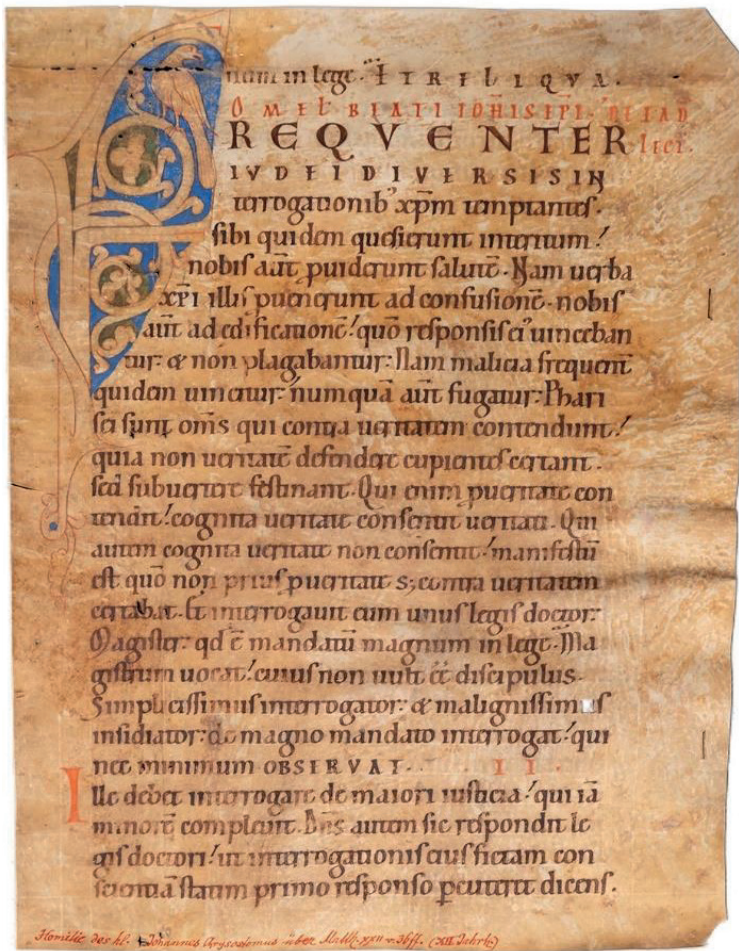 num in lege. ET RELIQVA.
OMEL BEATI IOHIS EPI. DE EAD
REQVENTER lect.
IVDEI DIVERSIS IN
terrogationib' xp̄m temptantes.
sibi quidem quesierunt interitum!
nobis aūt p̱uiderunt salutē. Nam uerba
xp̄i illis p̱uenerunt ad confusionē. nobis
aūt ad edificationē! quō responsis ei' uinceban
tur: & non plagabantur: Nam malicia frequent̄
quidem uincitur: numquā aūt fugatur: Phari
sei sunt om̄s qui contra ueritatem contendunt!
quia non ueritatē defendere cupientes certant.
sed subuertere festinant. Qui enim p̱ ueritate con
tendit! cognita ueritate consentit ueritati. Qui
autem cognita ueritate non consentit! manifestū
est quō non prius p̱ ueritate s; contra ueritatem
certabat. Et interrogauit eum unus legis doctor:
Magister: qd ē mandatū magnum in lege. Ma
gistrum uocat! cuius non uult eē discipulus.
Simplicissimus interrogator: & malignissimus
insidiator: de magno mandato interrogat! qui
nec minimum OBSERVAT. II
Ille debet interrogare de maiori iusticia! qui iā
minorē compleuit. Dn̄s autem sic respondit le
gis doctori! ut interrogationis eius fictam con
scientiā statim primo responso p̱cuteret dicens.
Homilie des hl. Johannes Chrysostomus über Matth. XXII v. 36ff. (XII. Jahrh.)